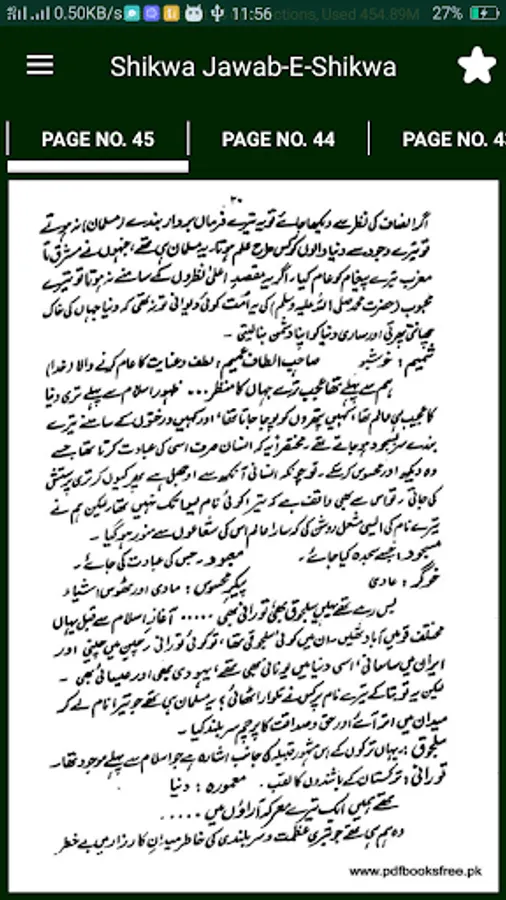 0.50KB/s 11:56 ctions, Used 454.89M 27%
Shikwa Jawab-E-Shikwa
PAGE NO. 45 PAGE NO. 44 PAGE NO. 43
۲۰
اگر انصاف کی نظر سے دیکھا جائے تو یہ تیرے فرماں بردار بندے (مسلمان) نہ ہوتے
تو تیرے وجود سے دنیا والوں کو کس طرح علم ہوتا۔ یہ مسلمان ہی تھے، جنہوں نے مشرق تا
مغرب تیرے پیغام کو عام کیا، اگر یہ مقصدِ اعلیٰ نظروں کے سامنے نہ ہوتا تو تیرے
محبوب (حضرت محمد صلی اللہ علیہ وسلم) کی یہ اُمت کوئی دیوانی تو نہ تھی کہ دنیا جہاں کی خاک
چھانتی پھرتی اور ساری دنیا کو اپنا دشمن بنا لیتی۔
شمیم: خوشبو صاحبِ الطافِ عمیم: لطف و عنایت کا عام کرنے والا (خدا)
ہم سے پہلے تھا عجیب ترے جہاں کا منظر... ظہورِ اسلام سے پہلے تری دنیا
کا عجیب ہی عالم تھا، کہیں پتھروں کو پوجا جاتا تھا، اور کہیں درختوں کے سامنے تیرے
بندے سر بسجود ہو جاتے تھے۔ مختصراً یہ کہ انسان صرف اسی کی عبادت کرتا تھا جسے
وہ دیکھ اور محسوس کر سکے۔ تو چونکہ انسانی آنکھ سے اوجھل ہے پھر کیوں کر تری پرستش
کی جاتی۔ تو اس سے بھی واقف ہے کہ تیرا کوئی نام لیوا تک نہیں تھا، لیکن ہم نے
تیرے نام کی ایسی مشعل روشن کی کہ سارا عالم اس کی شعاعوں سے منور ہو گیا۔
مسجود: جسے سجدہ کیا جائے۔ معبود۔ جس کی عبادت کی جائے۔
خوگر: عادی پیکرِ محسوس: مادی اور ٹھوس اشیاء
بس رہے تھے یہیں سلجوق بھی تورانی بھی ..... آغازِ اسلام سے قبل یہاں
مختلف قومیں آباد تھیں۔ ان میں کوئی سلجوقی تھا، تو کوئی تورانی۔ چین میں چینی اور
ایران میں ساسانی، اسی دنیا میں یونانی بھی تھے، یہودی بھی اور عیسائی بھی۔
لیکن یہ تو بتا کے تیرے نام پر کس نے تلوار اٹھائی؟ یہ مسلمان ہی تھے جو تیرا نام لے کر
میدان میں اتر آئے اور حق و صداقت کا پرچم سر بلند کیا۔
سلجوق: یہاں ترکوں کے اس مشہور قبیلہ کی جانب اشارہ ہے جو اسلام سے پہلے موجود تھا۔
تورانی: ترکستان کے باشندوں کا لقب۔ معمورہ: دنیا
تھے ہمیں ایک تیرے معرکہ آراؤں میں .....
وہ ہم ہی تھے جو تیری عظمت و سر بلندی کی خاطر میدانِ کارزار میں بے خطر
www.pdfbooksfree.pk